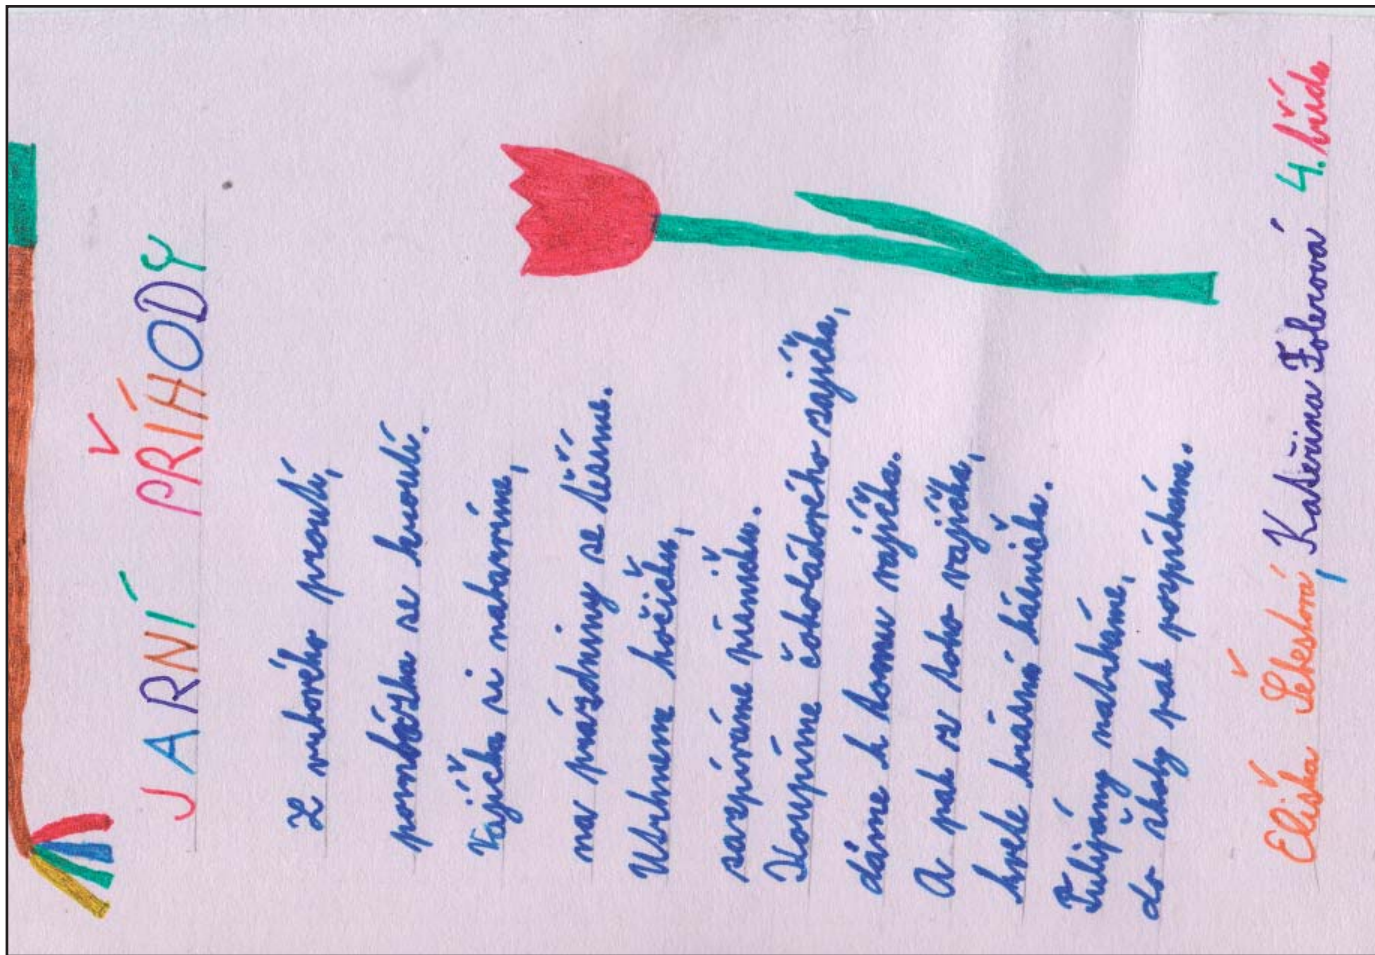 JARNÍ PŘÍHODY
Z vrbového proutí,
pomlázka se kroutí.
Vajíčka si nabarvíme,
na prázdniny se těšíme.
Utrhneme kočičku,
zazpíváme písničku.
Koupíme čokoládového zajíčka,
dáme k tomu vajíčka.
A pak ze toho vajíčka,
kvete krásná básnička.
Tulipány natrháme,
do školy pak pospícháme.
Eliška Kateřina Folerová 4. třída